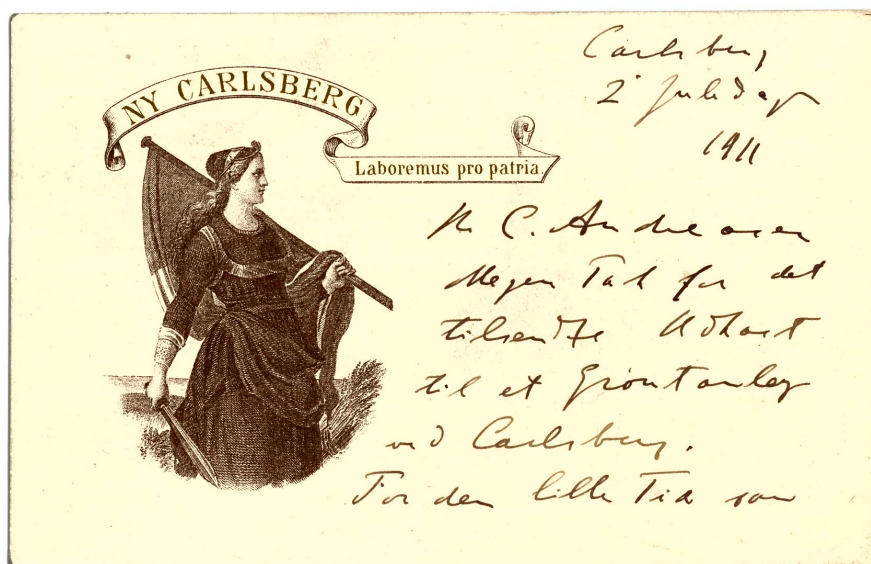 NY CARLSBERG
Laboremus pro patria.
Carlsberg
2 Juledag
1911
Hr C. Andreasen
Megen Tak for det
tilsendte Udkast
til et Grøntanlæg
ved Carlsberg.
For den lille Tid som